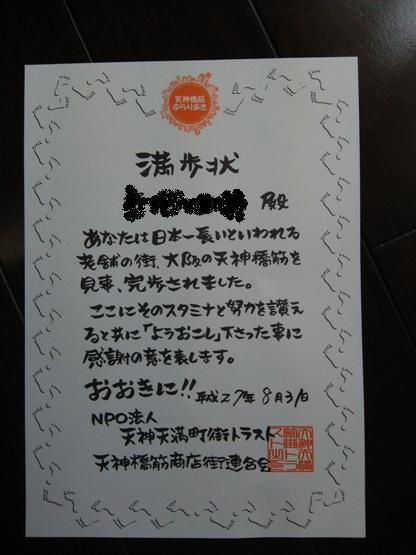 天神橋筋
ぶらり歩き
満歩状
殿
あなたは日本一長いといわれる
老舗の街、大阪の天神橋筋を
見事、完歩されました。
ここにそのスタミナと努力を讃え
ると共に「ようおこし」下さった事に
感謝の意を表します。
おおきに!! 平成27年8月31日
NPO法人
天神天満町街トラスト
天神橋筋商店街連合会